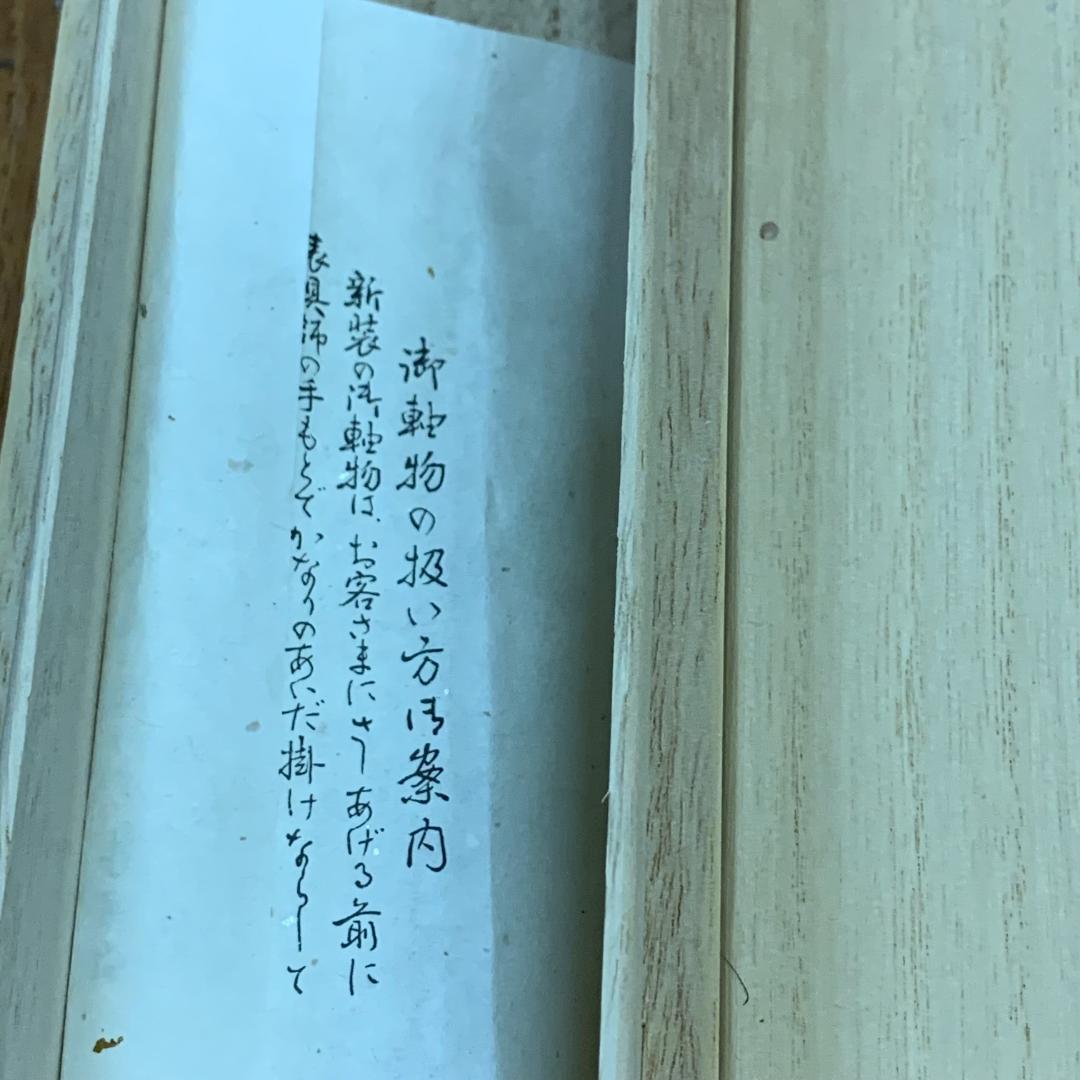 御軸物の扱い方御案内
新装の御軸物は、お客さまにさしあげる前に
表具師の手もとでかなりのあいだ掛けならして